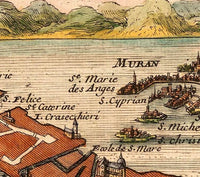 MURAN
Ste. Marie
des Anges
S. Cyprian
S. Felice
Ste Caterine
I. Crasechieri
S. Miche
S. Christ
Ecole de S. Marc